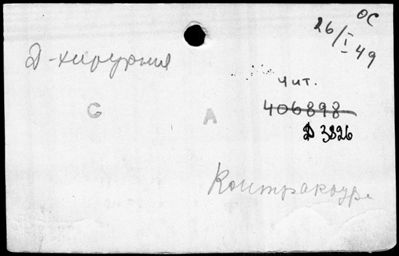 ОС
26/I 49
Д-хирургия
чит.
С А
406898
Д 3826
Контракоур